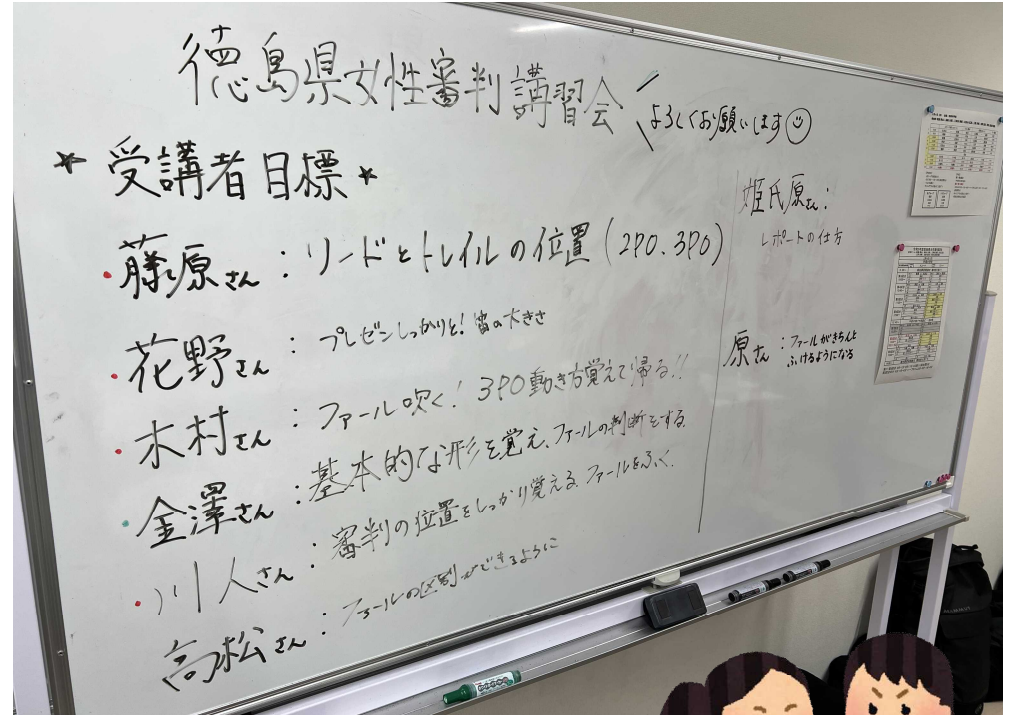 徳島県女性審判講習会
よろしくお願いします
* 受講者目標 *
・藤原さん : リードとトレイルの位置(2PO.3PO)
・花野さん : プレゼンしっかりと! 笛の大きさ
・木村さん : ファール吹く! 3PO動き方覚えて帰る!!
・金澤さん : 基本的な形を覚え、ファールの判断をする
・川人さん : 審判の位置をしっかり覚える. ファールをふく.
高松さん : ファールの区別ができるように
姫氏原さん :
レポートの仕方
原さん : ファールがきちんと
ふけるようになる